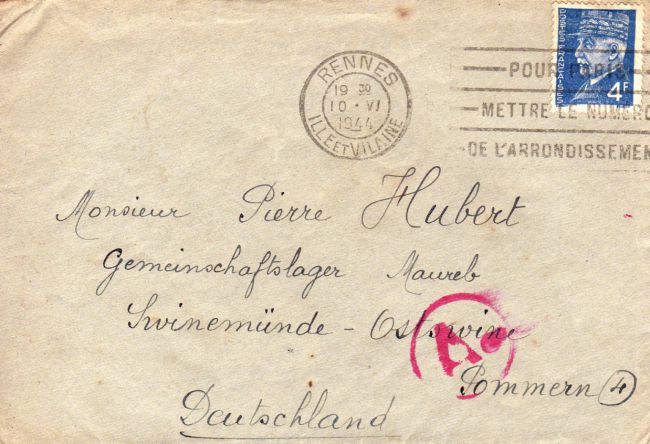 RENNES
19 30
10 · VI
1944
ILLE ET VILAINE
POUR PARIS
METTRE LE NUMERO
DE L'ARRONDISSEMEN
POSTES FRANÇAISES
4F
Monsieur Pierre Hubert
Gemeinschaftslager Maureb
Swinemünde - Ostswine
Pommern (4)
Deutschland